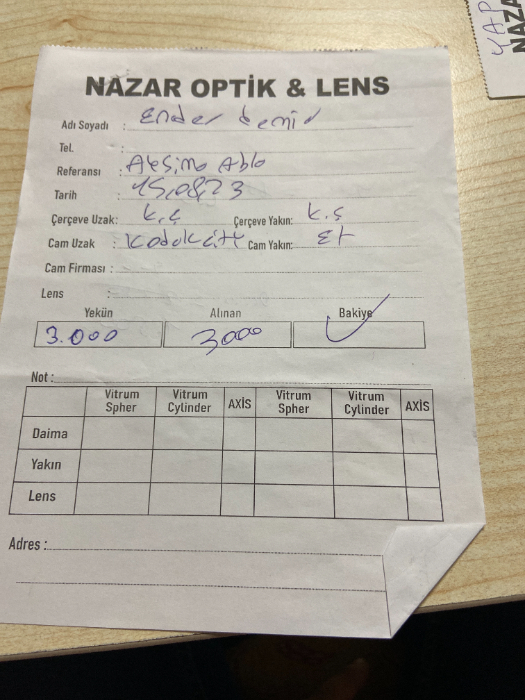 NAZAR OPTİK & LENS
Adı Soyadı : Ender Demir
Tel. :
Referansı : Ablo
Tarih : 15,08,23
Çerçeve Uzak: k.ç Çerçeve Yakın: k.ş
Cam Uzak : Cam Yakın:
Cam Firması :
Lens :
Yekün Alınan Bakiye
3.000 3000
Not :
Vitrum Spher Vitrum Cylinder AXİS Vitrum Spher Vitrum Cylinder AXİS
Daima
Yakın
Lens
Adres :
YAP
NAZA